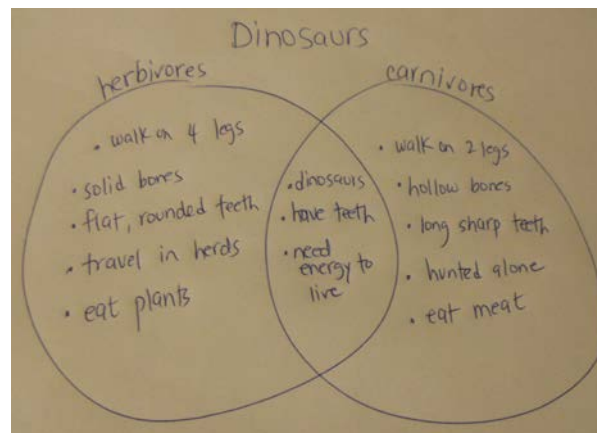 Dinosaurs
herbivores
• walk on 4 legs
• solid bones
• flat, rounded teeth
• travel in herds
• eat plants
• dinosaurs
• have teeth
• need
energy to
live
carnivores
• walk on 2 legs
• hollow bones
• long sharp teeth
• hunted alone
• eat meat